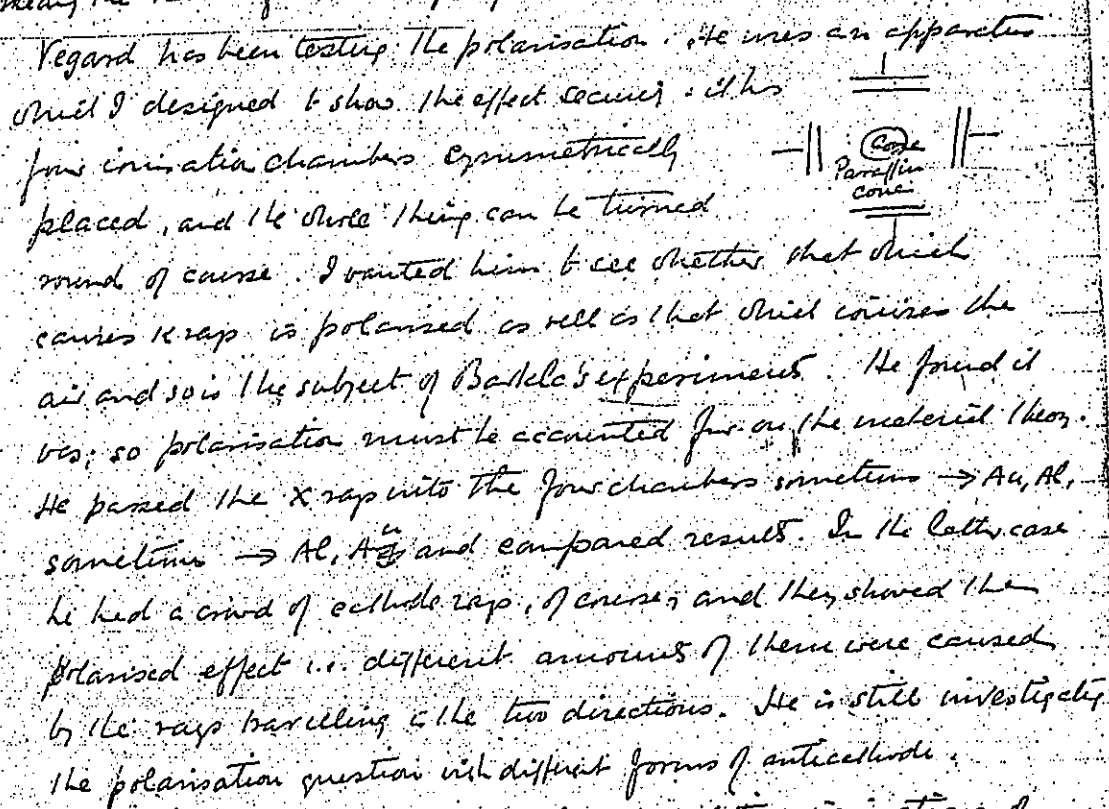 Vegard has been testing the polarisation. He uses an apparatus
which I designed to show the effect securely. it has
four ionisation chambers symmetrically
placed, and the whole thing can be turned
round of course. I wanted him to see whether that which
causes K rays is polarised as well as that which ionises the
air and so is the subject of Barkla's experiments. He found it
was; so polarisation must be accounted for on the material theory.
He passed the X rays into the four chambers sometimes → Au, Al,
sometimes → Al, Au and compared results. In the latter case
he had a crowd of cathode rays, of course, and they showed the
polarised effect i.e. different amounts of them were caused
by the rays travelling in the two directions. He is still investigating
the polarisation question with different forms of anticathode.
Paraffin
cone